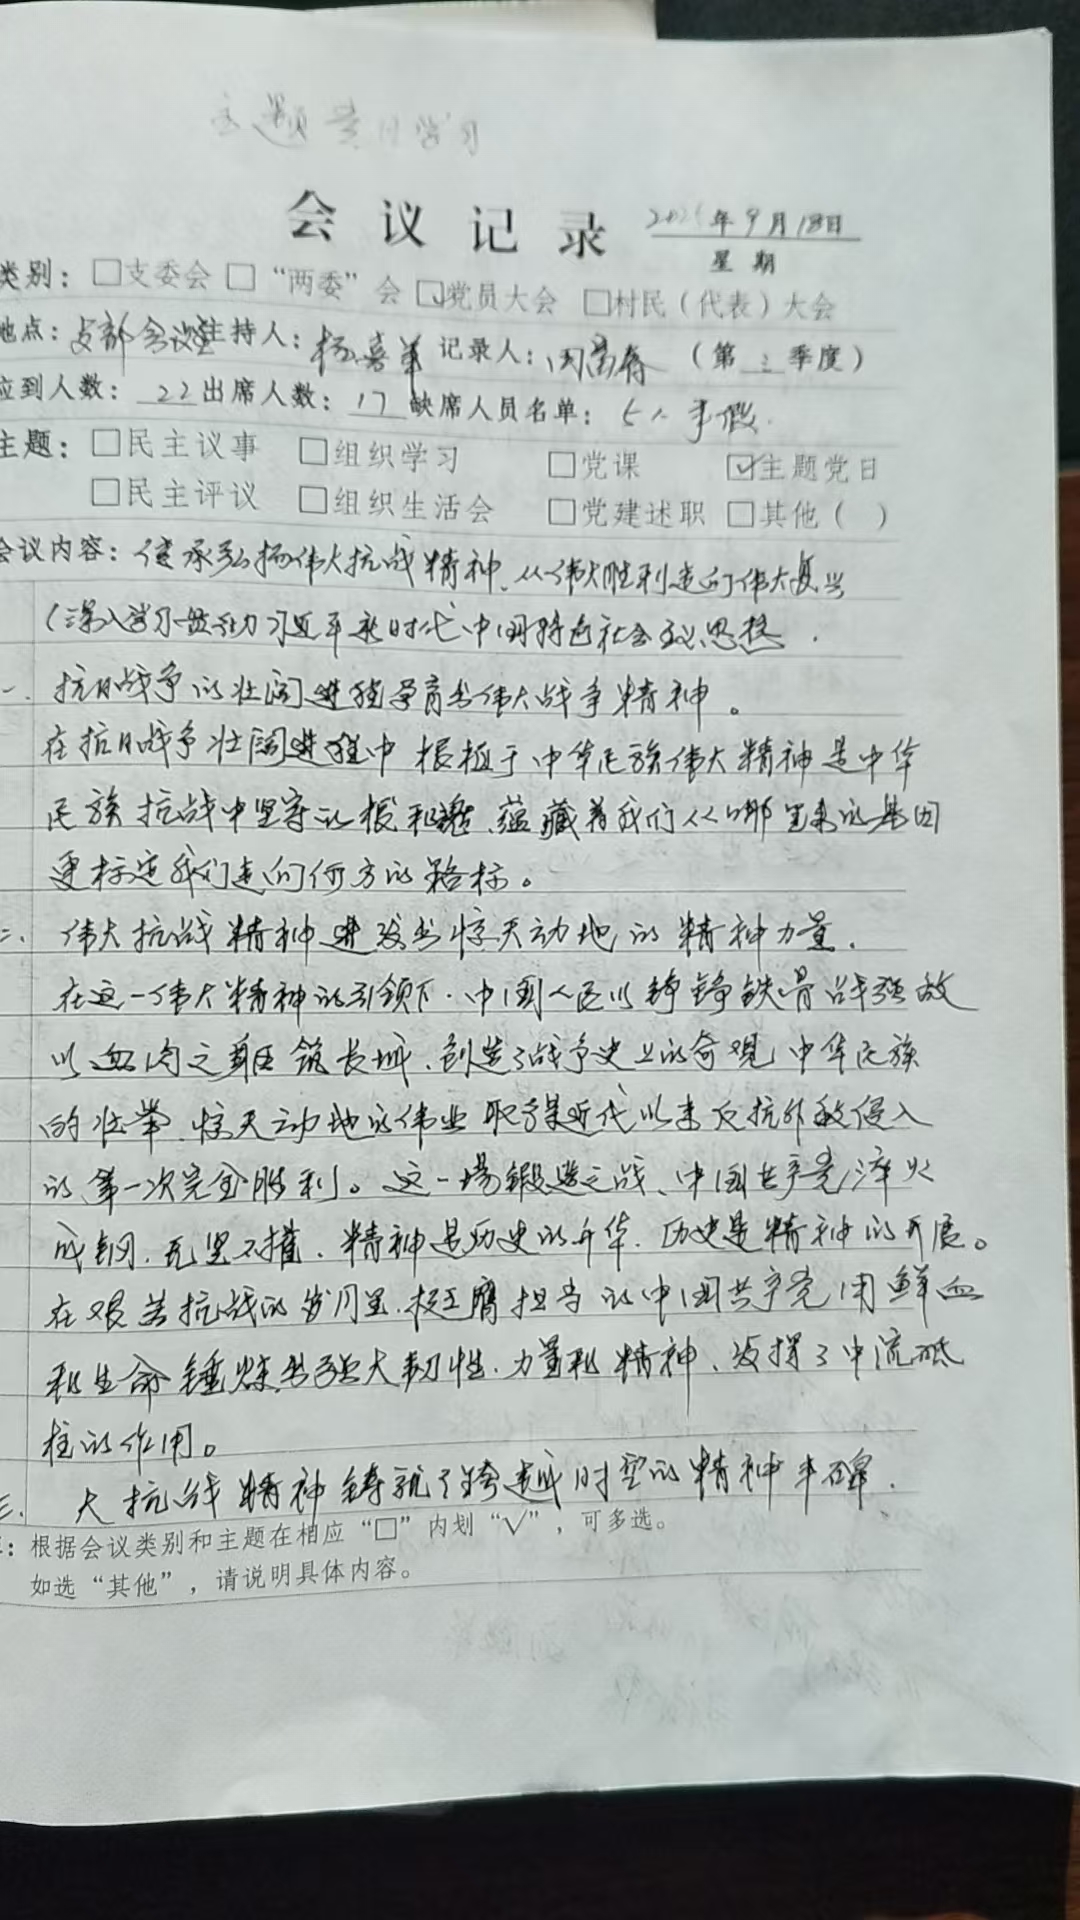 主题党日学习
会议记录
年9月18日
星期
类别：□支委会 □“两委”会 ☑党员大会 □村民（代表）大会
地点：支部会议室 主持人：杨喜 记录人：周 （第三季度）
应到人数：22 出席人数：17 缺席人员名单：5人事假.
主题：□民主议事 □组织学习 □党课 ☑主题党日
□民主评议 □组织生活会 □党建述职 □其他（ ）
会议内容：继承弘扬伟大抗战精神、从伟大胜利走向伟大复兴
（深入学习 习近平新时代中国特色社会主义思想.
一. 抗日战争的壮阔进程孕育出伟大战争精神。
在抗日战争壮阔进程中 根植于中华民族伟大精神是中华
民族抗战中坚守的根和魂、蕴藏着我们从哪里来的基因
更标定我们走向何方的路标。
二. 伟大抗战精神迸发出惊天动地的精神力量.
在这一伟大精神的引领下.中国人民以铮铮铁骨战强敌
以血肉之躯筑长城、创造了战争史上的奇观 中华民族
的壮举、惊天动地的伟业 取得近代以来反抗外敌侵入
的第一次完全胜利。这一场锻造之战、中国共产党淬火
成钢.无坚不摧.精神是历史的升华.历史是精神的开展。
在艰苦抗战的岁月里.挺膺担当的中国共产党用鲜血
和生命锤炼出强大韧性.力量和精神、发挥了中流砥
柱的作用。
三. 大抗战精神铸就了跨越时空的精神丰碑.
：根据会议类别和主题在相应“□”内划“√”，可多选。
如选“其他”，请说明具体内容。